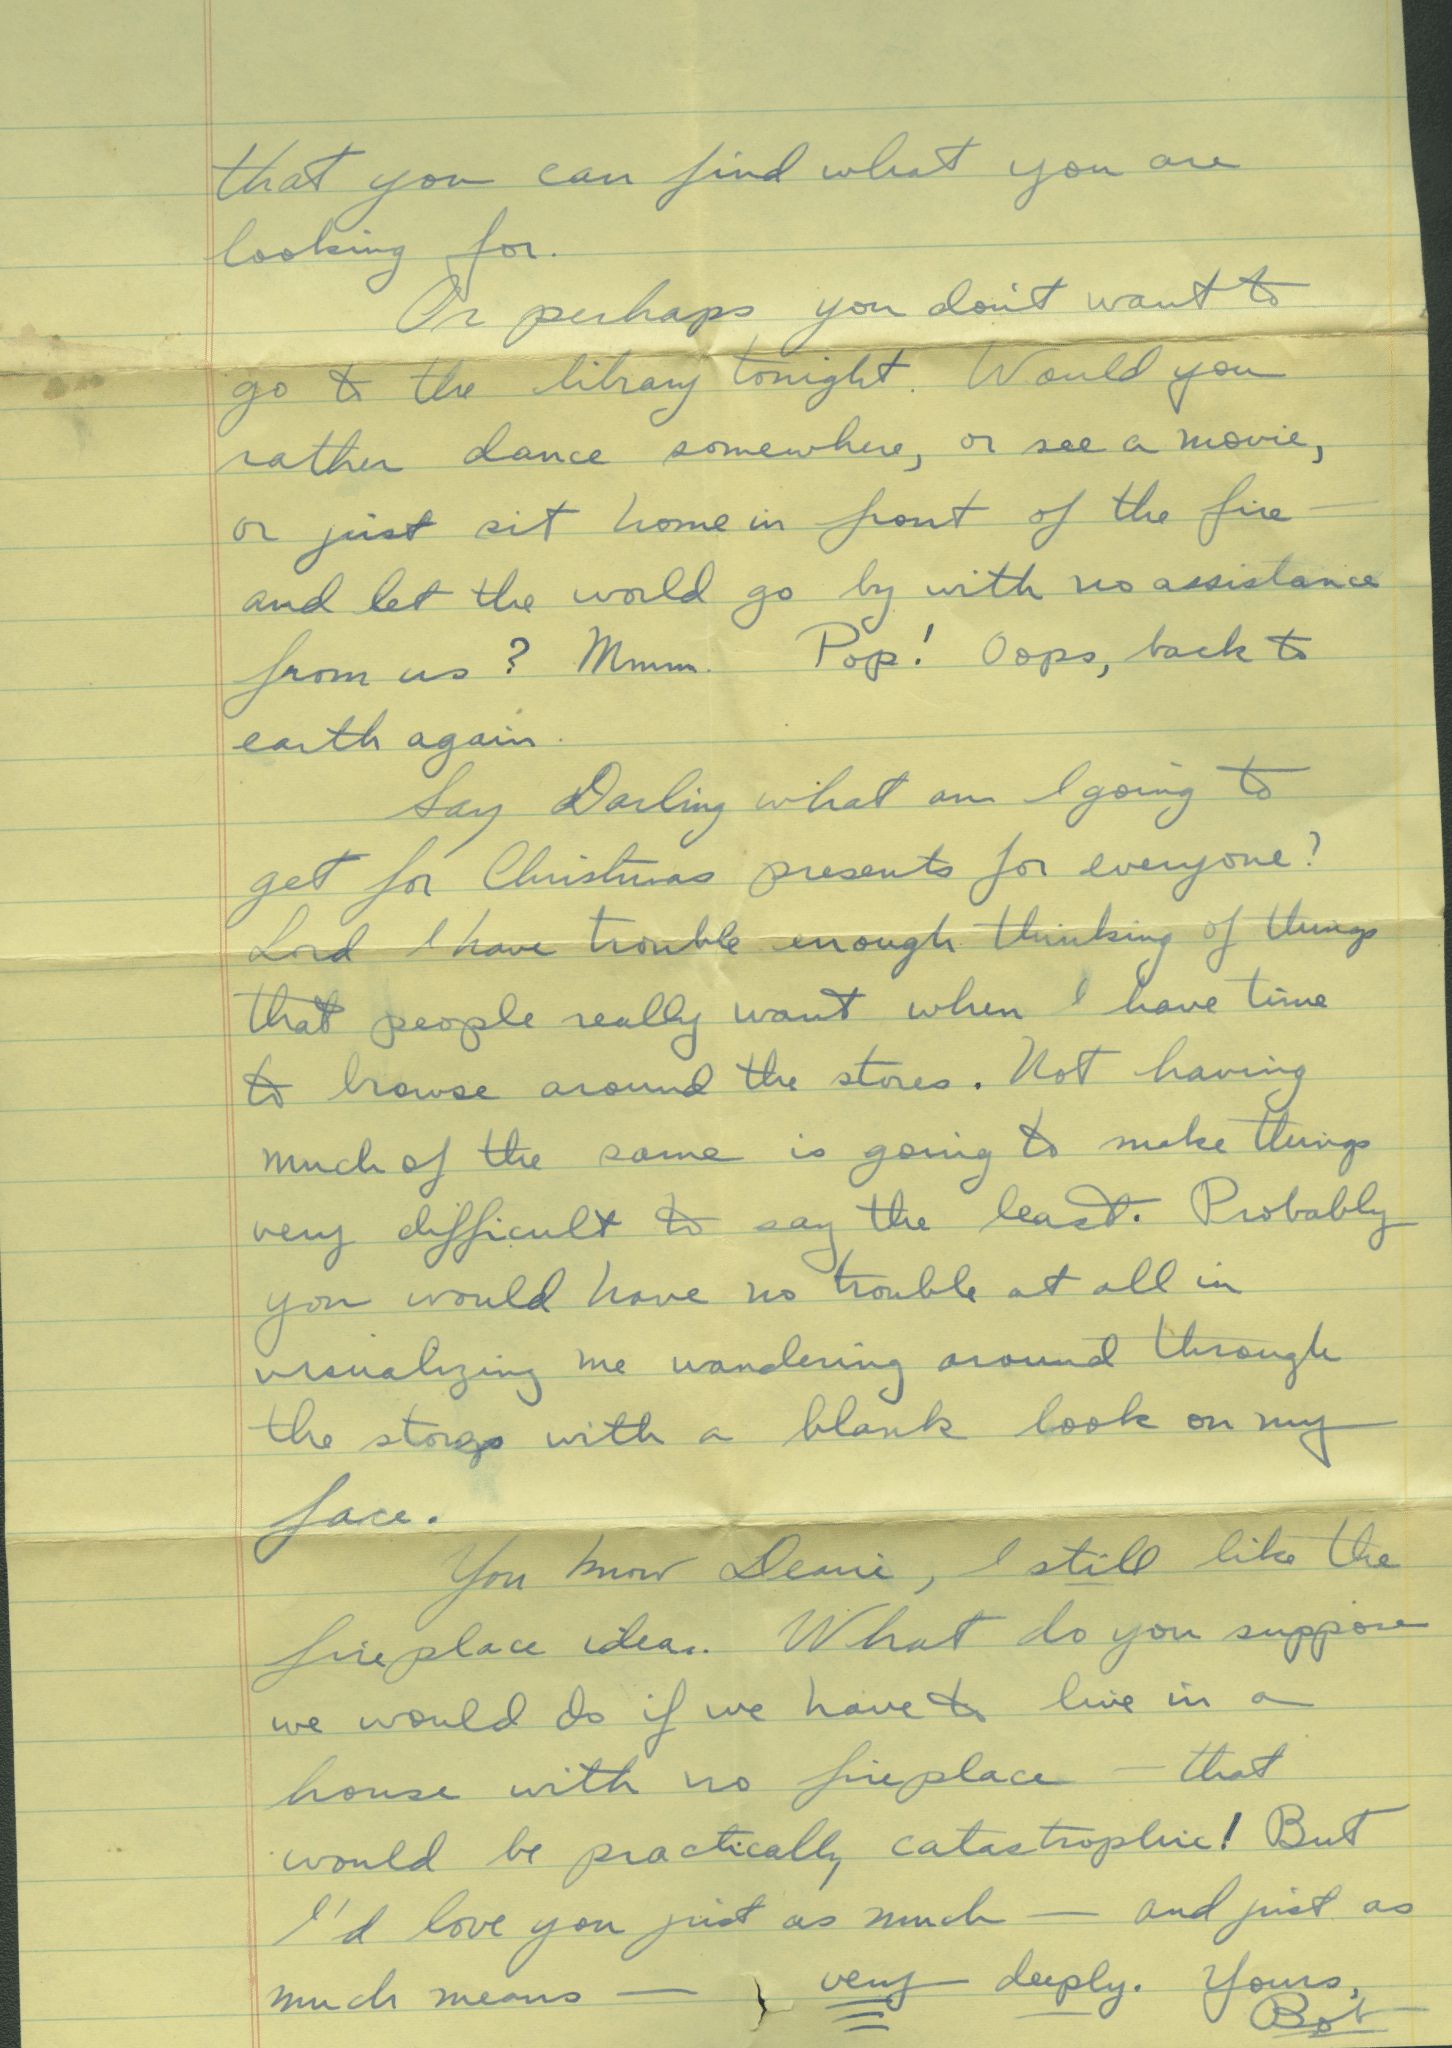 that you can find what you are
looking for.
Or perhaps you don't want to
go to the library tonight. Would you
rather dance somewhere, or see a movie,
or just sit home in front of the fire —
and let the world go by with no assistance
from us? Mmmm. Pop! Oops, back to
earth again.
Say Darling what am I going to
get for Christmas presents for everyone?
Lord I have trouble enough thinking of things
that people really want when I have time
to browse around the stores. Not having
much of the same is going to make things
very difficult to say the least. Probably
you would have no trouble at all in
visualizing me wandering around through
the stores with a blank look on my
face.
You know Deanie, I still like the
fireplace idea. What do you suppose
we would do if we have to live in a
house with no fireplace — that
would be practically catastrophic! But
I'd love you just as much — and just as
much means — very deeply. Yours,
Bob